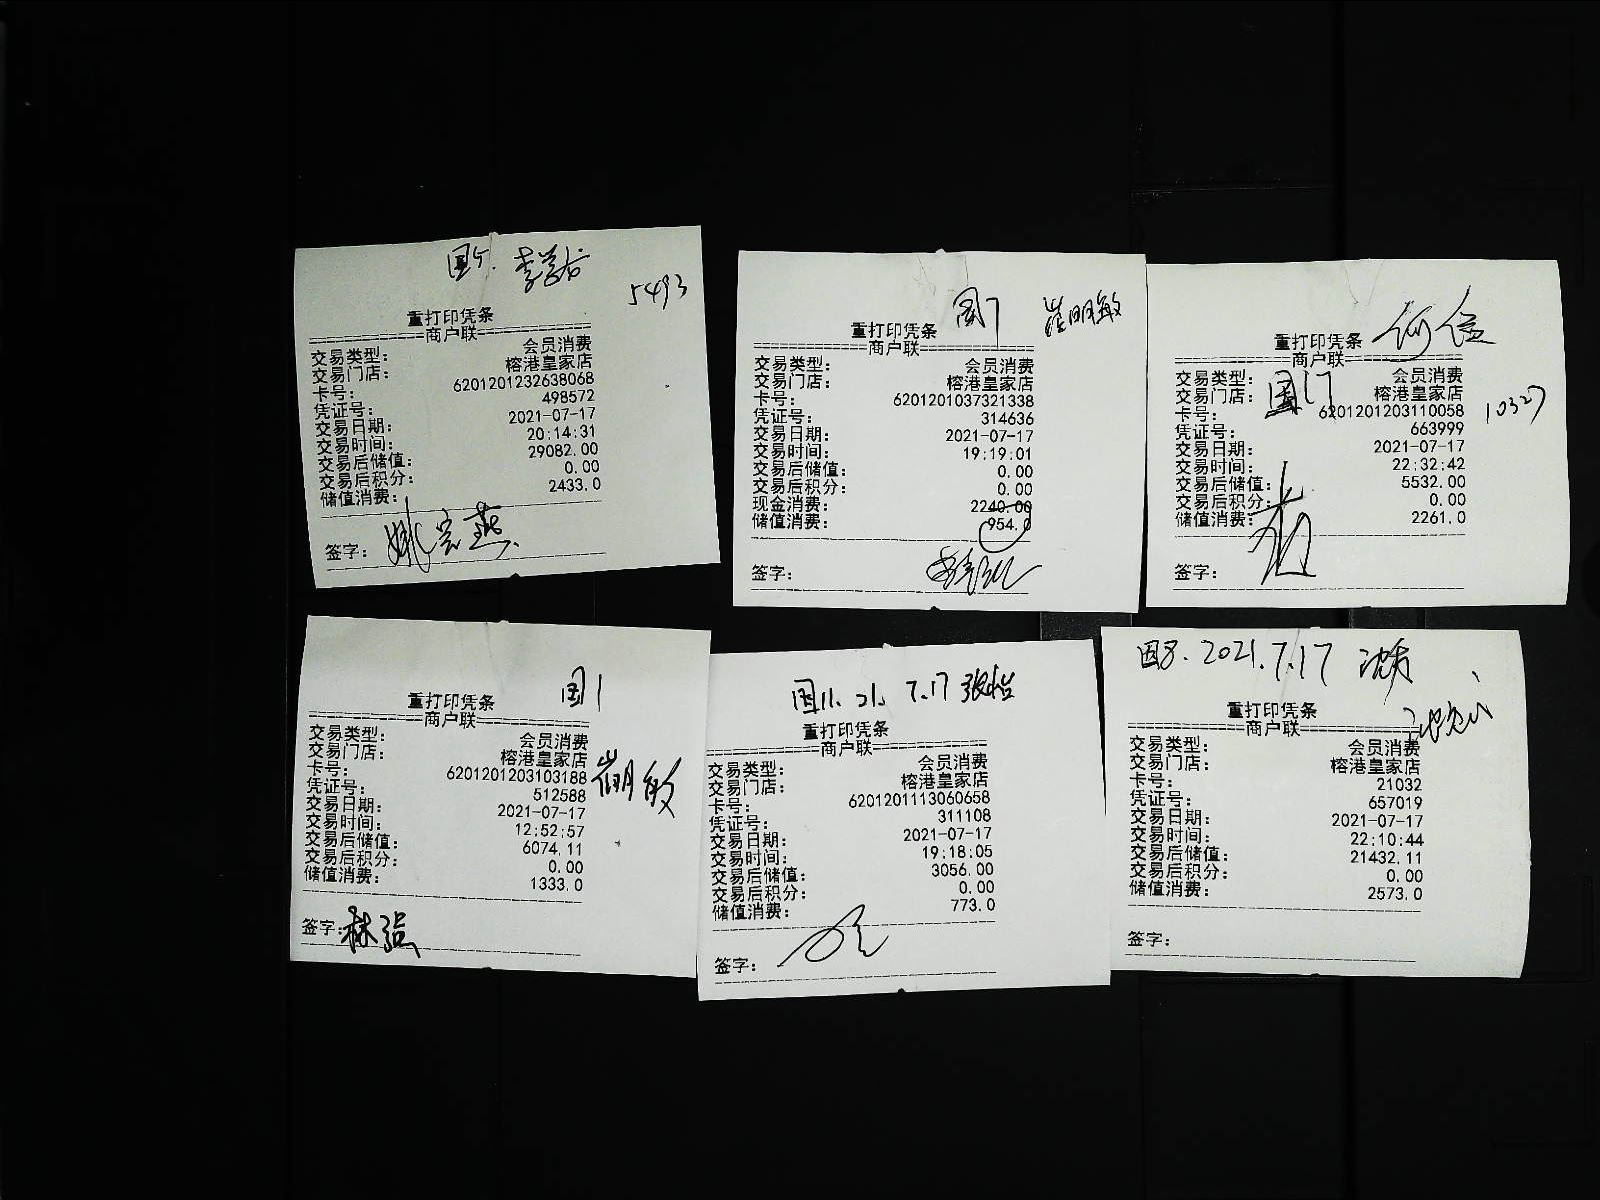 国5.
5493
重打印凭条
商户联
交易类型： 会员消费
交易门店： 榕港皇家店
卡号： 6201201232638068
凭证号： 498572
交易日期： 2021-07-17
交易时间： 20:14:31
交易后储值： 29082.00
交易后积分： 0.00
储值消费： 2433.0
签字： 姚宗燕
国7 崔明敏
重打印凭条
商户联
交易类型： 会员消费
交易门店： 榕港皇家店
卡号： 6201201037321338
凭证号： 314636
交易日期： 2021-07-17
交易时间： 19:19:01
交易后储值： 0.00
交易后积分： 0.00
现金消费： 2240.00
储值消费： 954.0
签字：
重打印凭条
商户联
交易类型： 会员消费
交易门店： 榕港皇家店
卡号： 6201201203110058
10327
凭证号： 663999
交易日期： 2021-07-17
交易时间： 22:32:42
交易后储值： 5532.00
交易后积分： 0.00
储值消费： 2261.0
签字：
国1
重打印凭条
商户联
交易类型： 会员消费
交易门店： 榕港皇家店
卡号： 6201201203103188
崔明敏
凭证号： 512588
交易日期： 2021-07-17
交易时间： 12:52:57
交易后储值： 6074.11
交易后积分： 0.00
储值消费： 1333.0
签字： 林强
国11. 21. 7.17 张怡
重打印凭条
商户联
交易类型： 会员消费
交易门店： 榕港皇家店
卡号： 6201201113060658
凭证号： 311108
交易日期： 2021-07-17
交易时间： 19:18:05
交易后储值： 3056.00
交易后积分： 0.00
储值消费： 773.0
签字：
国8. 2021.7.17
重打印凭条
商户联
交易类型： 会员消费
交易门店： 榕港皇家店
卡号： 21032
凭证号： 657019
交易日期： 2021-07-17
交易时间： 22:10:44
交易后储值： 21432.11
交易后积分： 0.00
储值消费： 2573.0
签字：